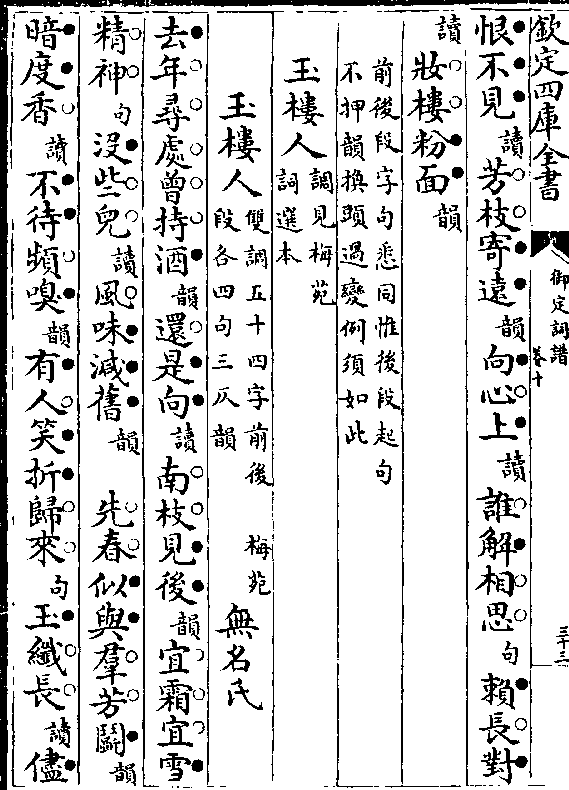 欽定四庫全書
御定詞譜
卷十
三十三
恨不見讀芳枝寄遠韻向心上讀誰解相思句賴長對
讀妝樓粉面韻
前後段字句悉同惟後段起句
不押韻換頭過變例須如此
玉樓人調見梅苑
詞選本
玉樓人雙調五十四字前後
段各四句三仄韻
梅苑
無名氏
去年尋處曾持酒韻還是向讀南枝見後韻宜霜宜雪
精神句沒些兒讀風味減舊韻先春似與羣芳鬬韻
暗度香讀不待頻嗅韻有人笑折歸來句玉纖長讀儘